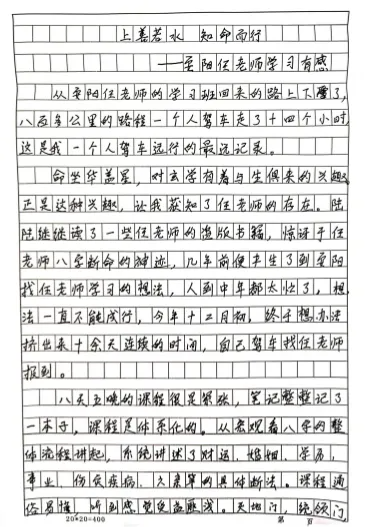 上善若水 知命而行
——安阳任老师学习有感
从安阳任老师的学习班回来的路上下雪了，
八百多公里的路程一个人驾车走了十四个小时，
这是我一个人驾车远行的最远记录。
命坐华盖星，对玄学有着与生俱来的兴趣，
正是这种兴趣，让我获知了任老师的存在。陆
陆继继读了一些任老师的盗版书籍，惊讶于任
老师八字断命的神迹，几年前便产生了到安阳
找任老师学习的想法，人到中年都太忙了，想
法一直不能成行，今年十二月初，终于想办法
挤出来十余天连续的时间，自己驾车找任老师
报到。
八天五晚的课程很是紧张，笔记整整记了
一本子，课程是体系化的。从宏观看八字的整
体流程讲起，系统讲述了财运、婚姻、学历、
事业、伤灾疾病、六亲等的具体断法。课程通
俗易懂，听到感觉受益匪浅。天地门，统领门
20×20=400
第 页